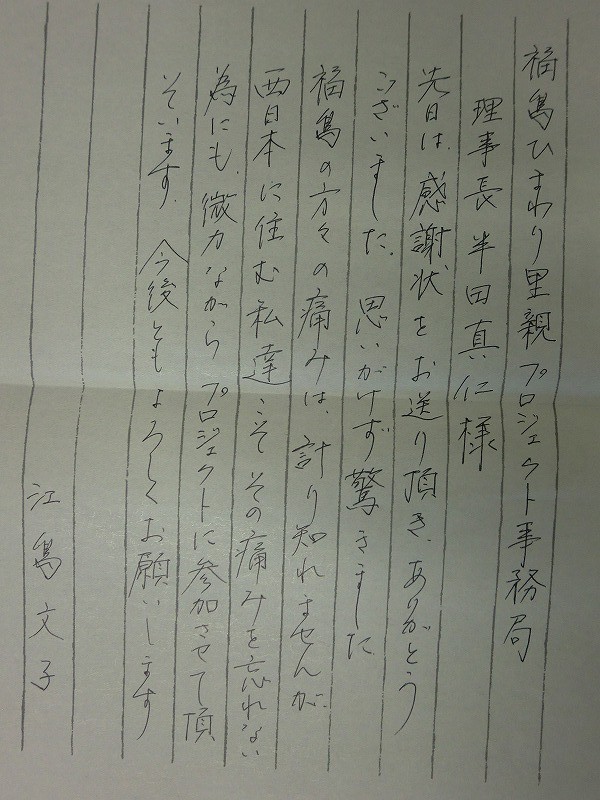 福島ひまわり里親プロジェクト事務局
理事長 半田真仁様
先日は、感謝状をお送り頂き、ありがとう
ございました。思いがけず驚きました。
福島の方々の痛みは、計り知れませんが、
西日本に住む私達こそその痛みを忘れない
為にも、微力ながらプロジェクトに参加させて頂
そいます。今後ともよろしくお願いします
江島文子